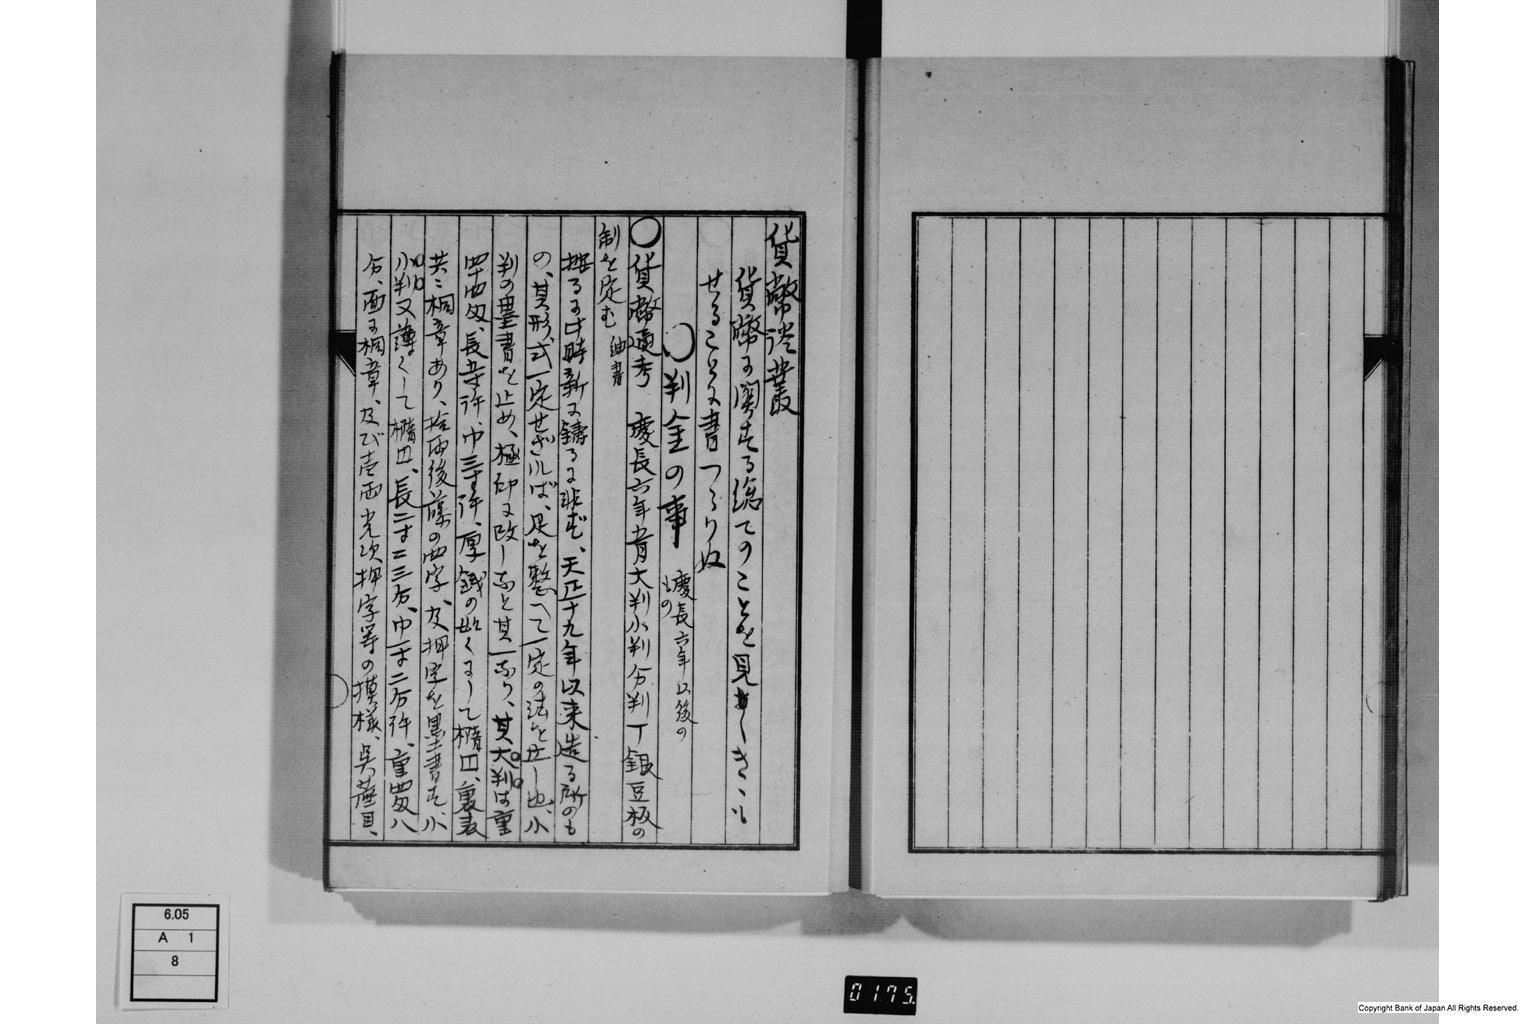 貨幣迂叢
貨幣に関する総てのことを見きゝも
せることに書つゞりぬ
○判金の事 慶長六年以後の
もの
○貨幣通考 慶長六年 大判小判分判丁銀豆板の
制を定む 細書
按るに此時新に鋳るに非ず、天正十九年以来造る所のも
の、其形式一定せざれば、是を整へて一定の法を立し也、小
判の墨書を止め、極印に改しなど其一なり、其大判は重
四十四匁、長五寸許、巾三寸許、厚銭の如くにして橢円、裏表
共ニ桐章あり、拾両後藤の四字、及押字を墨書す、小
小判又薄くして橢円、長二寸二三分、巾一寸二分許、重四匁八
分、面に桐章、及び壱両光次押字等の摸様、呉蓙目、
6.05
A 1
8
0175.
Copyright Bank of Japan All Rights Reserved.